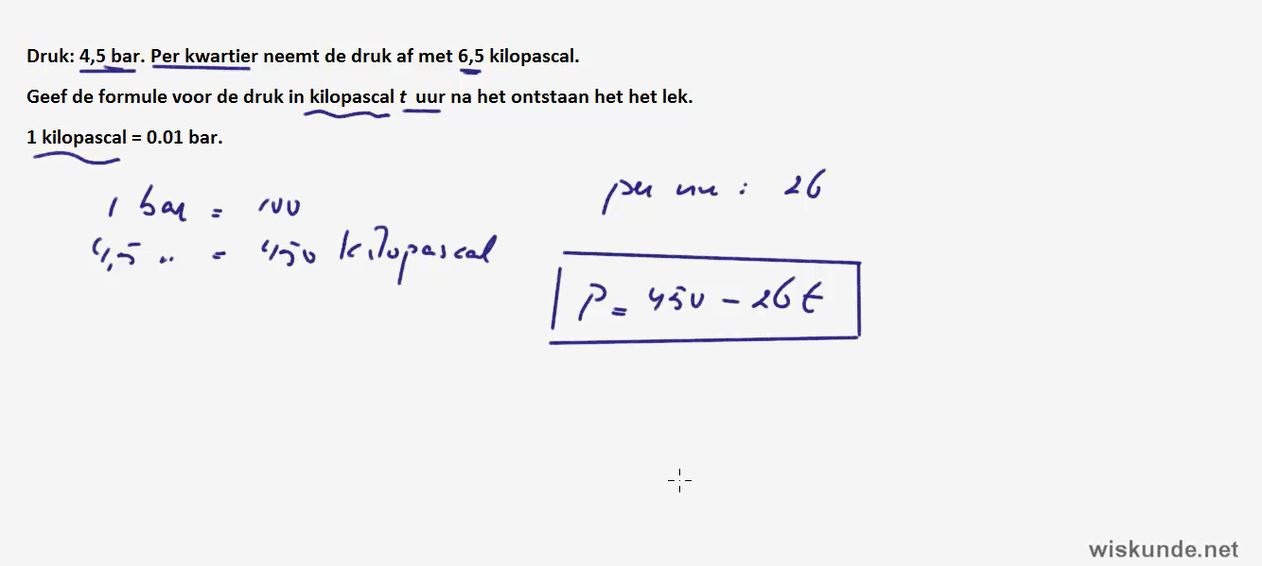 Druk: 4,5 bar. Per kwartier neemt de druk af met 6,5 kilopascal.
Geef de formule voor de druk in kilopascal t uur na het ontstaan het het lek.
1 kilopascal = 0.01 bar.
1 bar = 100
4,5 " = 450 kilopascal
per uur : 26
P = 450 - 26 t
wiskunde.net